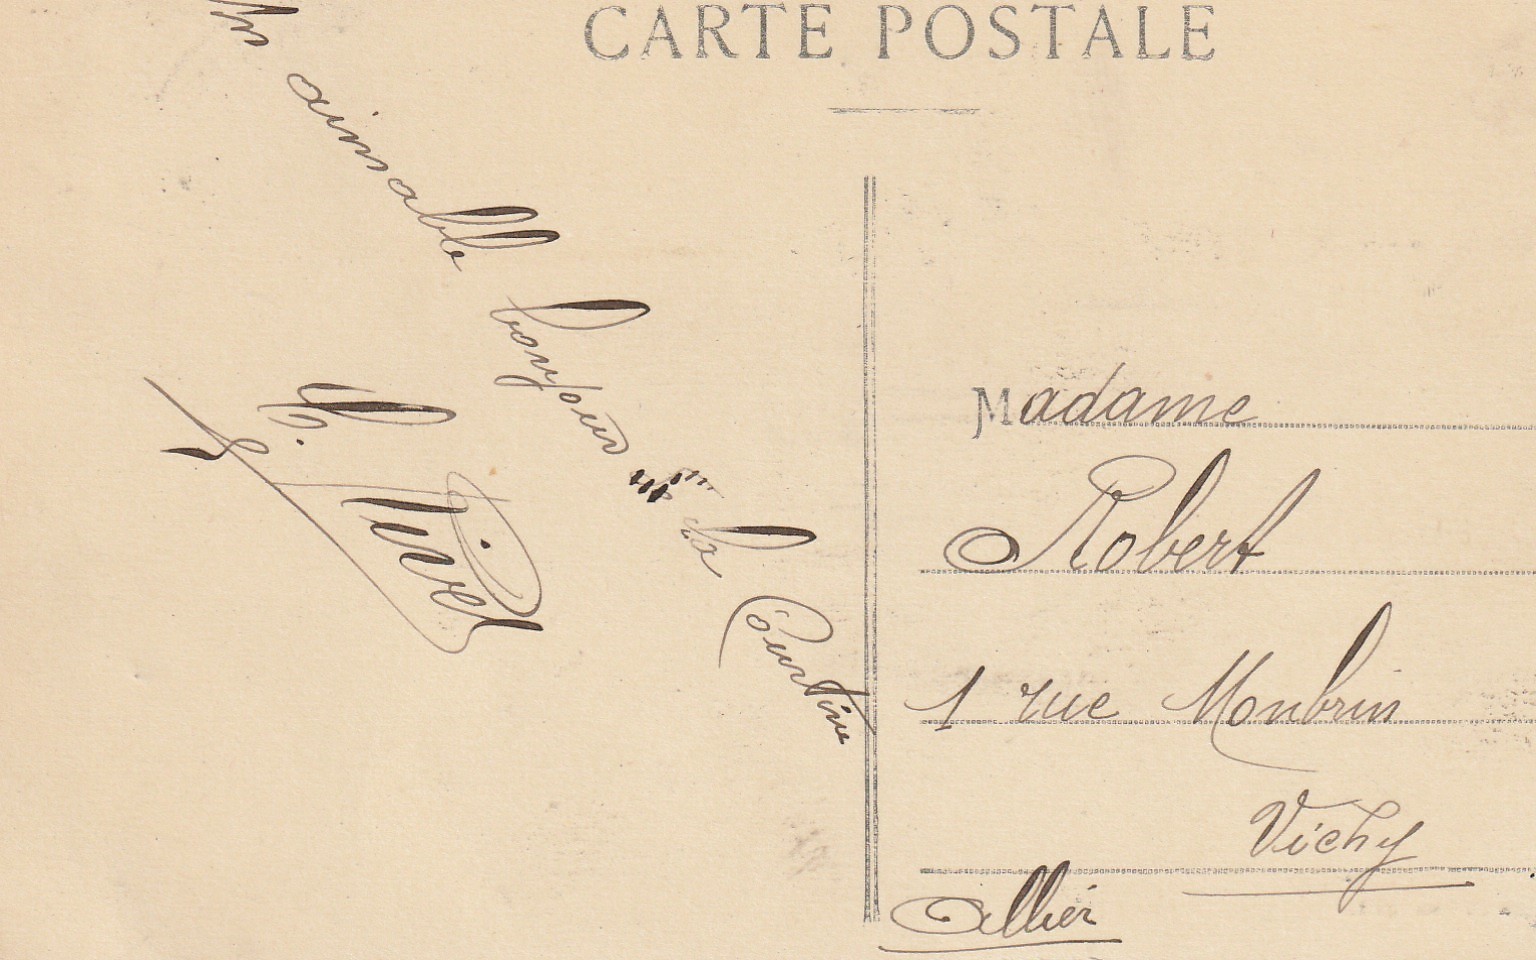 CARTE POSTALE
Un aimable bonjour de la Courtine
Madame
Robert
1 rue Monbrun
Vichy
Allier